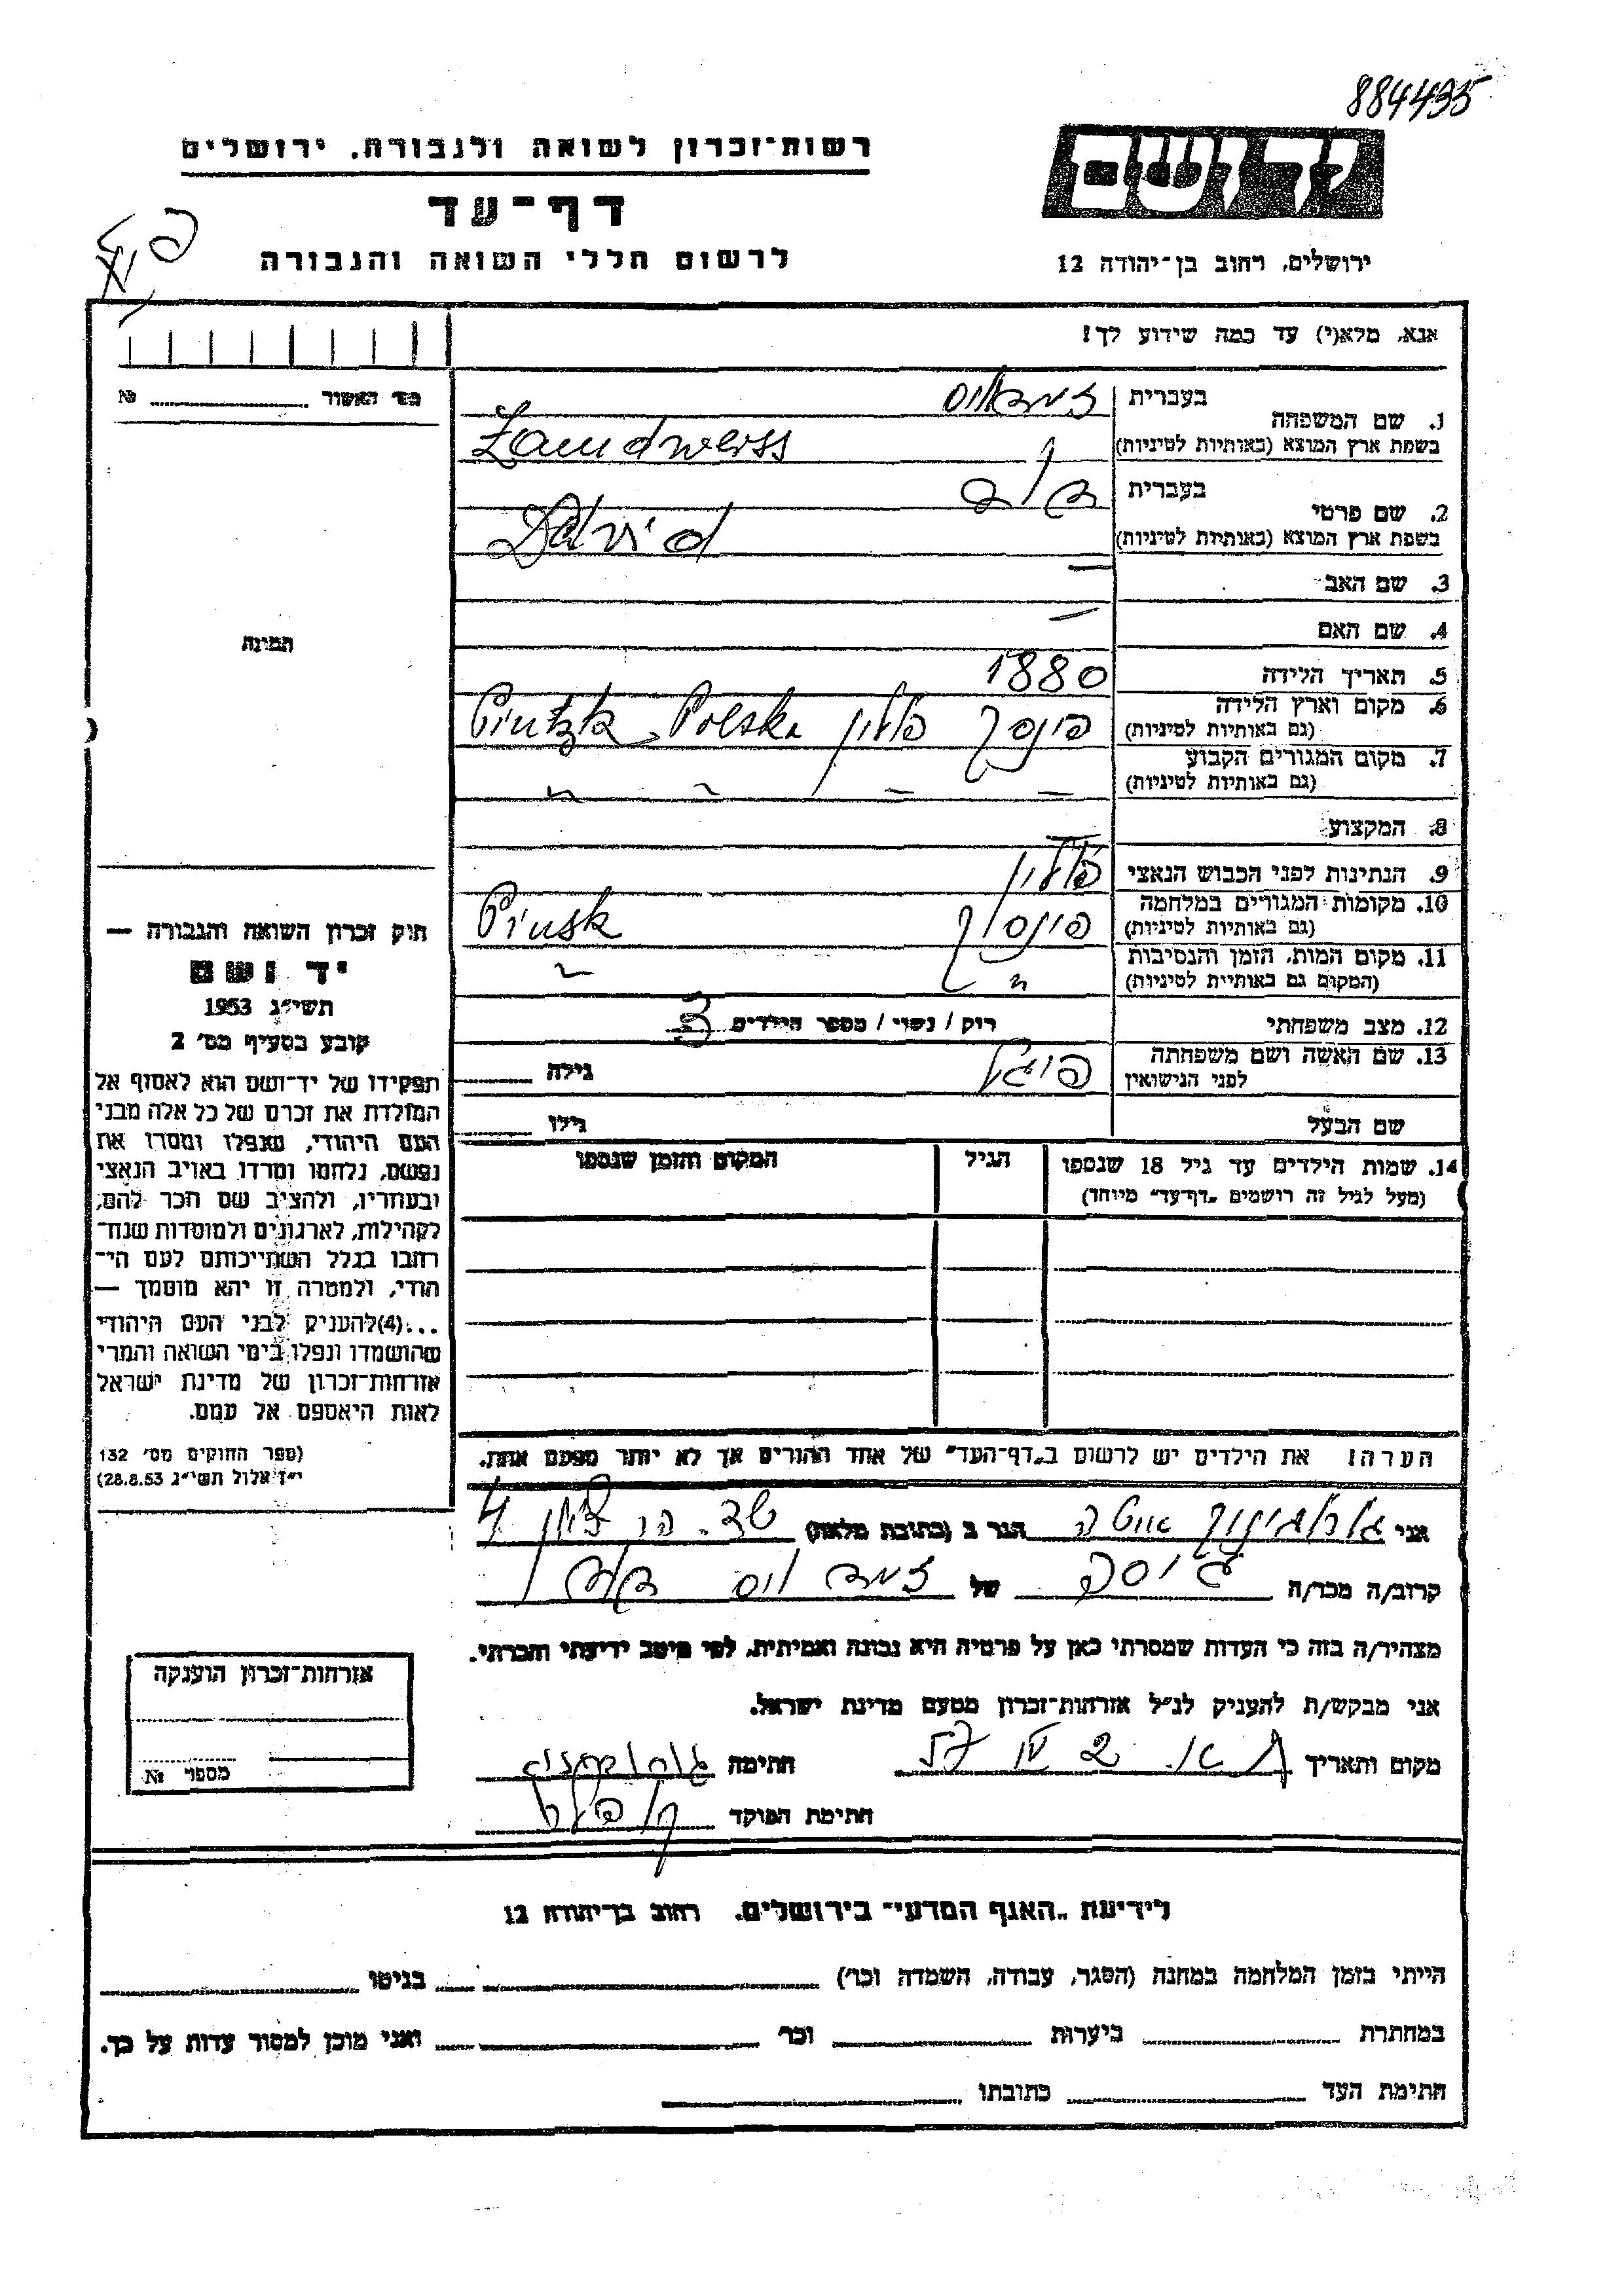 884435
רשות־זכרון לשואה ולגבורה. ירושלים
דף־עד
לרשום חללי השואה והגבורה
ירושלים, רחוב בן־יהודה 12
אנא, מלא(י) עד כמה שידוע לך!
מס׳ האשור № 
1. שם המשפחה
בעברית
בשפת ארץ המוצא (באותיות לטיניות)
Zandweiss
2. שם פרטי
בעברית דוד
בשפת ארץ המוצא (באותיות לטיניות)
David
3. שם האב –
4. שם האם –
תמונה
5. תאריך הלידה 1880
6. מקום וארץ הלידה
(גם באותיות לטיניות)
פינסק פולין Polska
7. מקום המגורים הקבוע
(גם באותיות לטיניות)
8. המקצוע –
9. הנתינות לפני הכבוש הנאצי פולין
10. מקומות המגורים במלחמה
(גם באותיות לטיניות)
פינסק Pinsk
11. מקום המות, הזמן והנסיבות
(המקום גם באותיות לטיניות)
12. מצב משפחתי רוק / נשוי / מספר הילדים 3
13. שם האשה ושם משפחתה
לפני הנישואין
פייגל גילה
שם הבעל גילו
14. שמות הילדים עד גיל 18 שנספו
(מעל לגיל זה רושמים „דף־עד״ מיוחד)
הגיל
המקום והזמן שנספו
חוק זכרון השואה והגבורה —
יד ושם
תשי״ג 1953
קובע בסעיף מס׳ 2
תפקידו של יד־ושם הוא לאסוף אל
המולדת את זכרם של כל אלה מבני
העם היהודי, שנפלו ומסרו את
נפשם, נלחמו ומרדו באויב הנאצי
ובעוזריו, ולהציב שם וזכר להם,
לקהילות, לארגונים ולמוסדות שנח־
רבו בגלל השתייכותם לעם הי־
הודי, ולמטרה זו יהא מוסמך —
...(4)להעניק לבני העם היהודי
שהושמדו ונפלו בימי השואה והמרי
אזרחות־זכרון של מדינת ישראל
לאות היאספם אל עמם.
(ספר החוקים מס׳ 132
י״ז אלול תשי״ג 28.8.53)
הערה! את הילדים יש לרשום ב„דף־העד״ של אחד ההורים אך לא יותר מפעם אחת.
אני הגר ב (כתובת מלאה) 4
קרוב/ה מכר/ה גיסה של דוד
מצהיר/ה בזה כי העדות שמסרתי כאן על פרטיה היא נכונה ואמיתית, לפי מיטב ידיעתי והכרתי.
אני מבקש/ת להעניק לנ״ל אזרחות־זכרון מטעם מדינת ישראל.
מקום ותאריך חתימה
חתימת הפוקד
אזרחות־זכרון הוענקה
מספר №
לידיעת „האגף המדעי״ בירושלים. רחוב בן־יהודה 12
הייתי בזמן המלחמה במחנה (הסגר, עבודה, השמדה וכו׳) בגיטו
במחתרת ביערות וכו׳ ואני מוכן למסור עדות על כך.
חתימת העד כתובתו